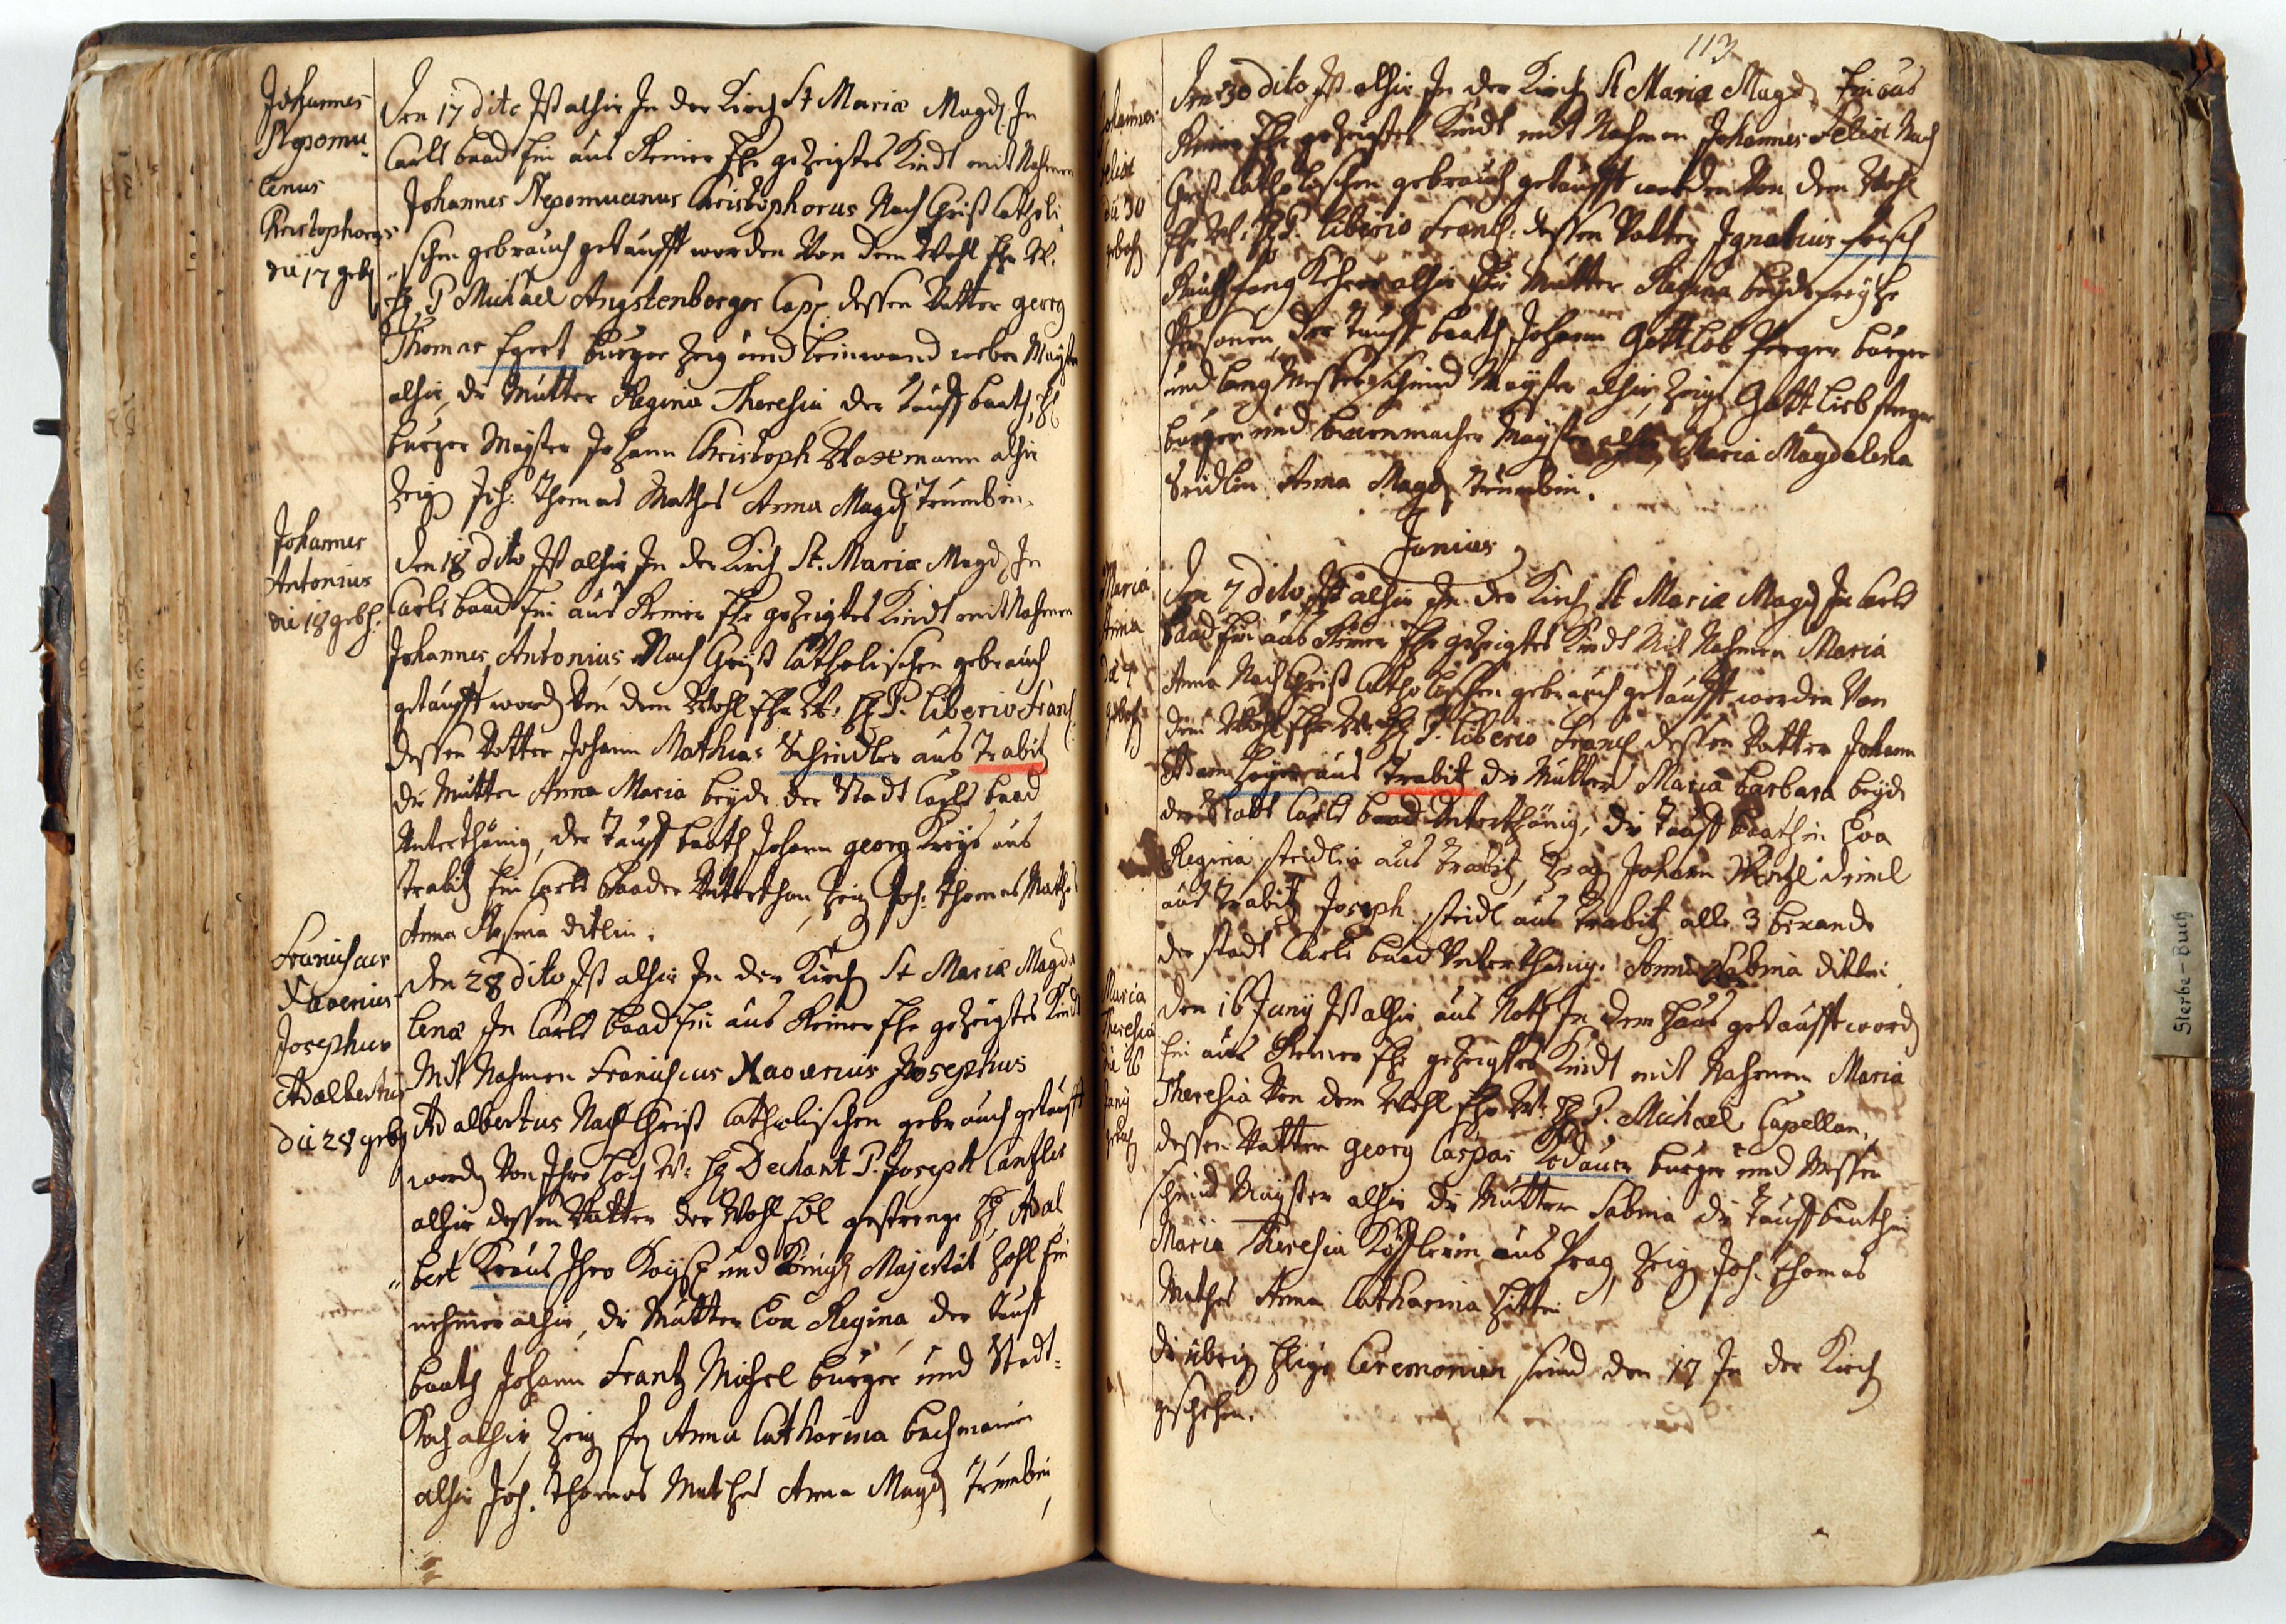 Johannes
Nepomu
cenus
Christophorus
die 17 geb
Den 17 dito Ist alhir In der Kirch St Mariæ Magd In
Carls baad Ein aus Reiner Ehe gezeigtes Kindt mit Nahmen
Johannes Nepomucenus Christophorus Nach Christ Catholi
schen gebrauch getaufft worden Von dem Wohl Ehr W.
H. P Michael Angstenberger Cap. dessen Vatter georg
Thomas Egert burger Zeig und leinwand weber Mayster
alhir, die Mutter Regina Theresia der tauff baath, H
burger Mayster Johann Christoph Waxmann alhir
Zeig Joh: Thomas Mathes Anna Magd trumbin.
Johannes
Antonius
die 18 geb.
Den 18 dito Ist alhir In der Kirch St. Mariæ Magd, In
Carls baad Ein aus Reiner Ehe gezeigtes Kindt mit Nahmen
Johannes Antonius Nach Christ Catholischen gebrauch
getaufft word Von dem Wohl Ehr W: H P. liberio Franc
dessen Vatter Johann Mathias Schindler aus Trabitz
die Mutter Anna Maria beyde der Stadt Carls baad
Unterthänig, der tauff baath Johann georg Kreys aus
trabitz Ein Carls baader Unterthan, Zeig Joh: thomas Mathes
Anna ditlin.
Francishcus
Xaverius
Josephus
Adalbertus
die 28 geb
Den 28 dito Ist alhir In der Kirch St Mariæ Magda
lenæ In Carls baad Ein aus Reiner Ehe gezeigtes Kindt
Mit Nahmen Francishcus Xaverius Josephus
Adalbertus Nach Christ Catholischen gebrauch getaufft
word Von Ihro Hoch W: H Dechant P. Joseph Cantzler
alhir dessen Vatter der Wohl Edl gestrenge H, Adal
bert Kraus Ihro Kays und Königl Majestät Zohl Ein
nehmer alhir, die Mutter Eva Regina, der tauff
baath Johann Frantz Michel burger und Stadt=
Koch alhir, Zeig Anna Catharina bachmanin
alhir Joh. thomas Mathes Anna Magd trumbin
113
Johannes
Felix
die 30
gebohr
Den 30 dito Ist alhir In der Kirch St Maria Magd, Ein aus
Reiner Ehe gezeigtes Kindt mit Nahmen Johannes Felix Nach
Christ Catholischen gebrauch getaufft worden Von dem Wohl
Ehr W: H P. liberio Franc: dessen Vatter Ignatius frisch
Rauchfang Kehrer alhir die Mutter Regina beyde freyhe
Personen, der tauff baath Johann Gottlob burger
und lang Messerschmid Mayster alhir, Zeig Gottlieb
burger und Mayster alhir, Maria Magdalena
Seidlin Anna Magd trumbin.
Junius
Maria
Anna
die 7
gebohr
Den 7 dito Ist alhir In der Kirch St Mariæ Magd In Carls
baad Ein aus Reiner Ehe gezeigtes Kindt Mit Nahmen Maria
Anna Nach Christ Catholischen gebrauch getaufft worden Von
dem Wohl Ehr W: H P. liberio Franc dessen Vatter Johann
Adam aus Trabitz die Mutter Maria barbara beyde
der Stadt Carls baad Unterthänig, die tauff baathin Eva
Regina steidlin aus trabitz, Zeug Johann
aus trabitz Joseph steidl aus trabitz alle 3
der stadt Carls baad Unterthänig. Anna Sabina ditlin
Maria
Theresia
die 16
Juny
gebohr
Den 16 Juny Ist alhir aus Noth In dem Haus getaufft word
Ein aus Reiner Ehe gezeigtes Kindt mit Nahmen Maria
Theresia Von dem Wohl Ehr W: H P. Michael Capellan,
dessen Vatter georg Caspar burger und Messer
schmid Mayster alhir die Mutter Sabina die tauff baathin
Maria Theresia aus Prag, Zeig Joh. thomas
Mathes Anna Catharina
Die übrig Hlige Ceremonien seind den 17 In der Kirch
geschehen.
Sterbe-Buch